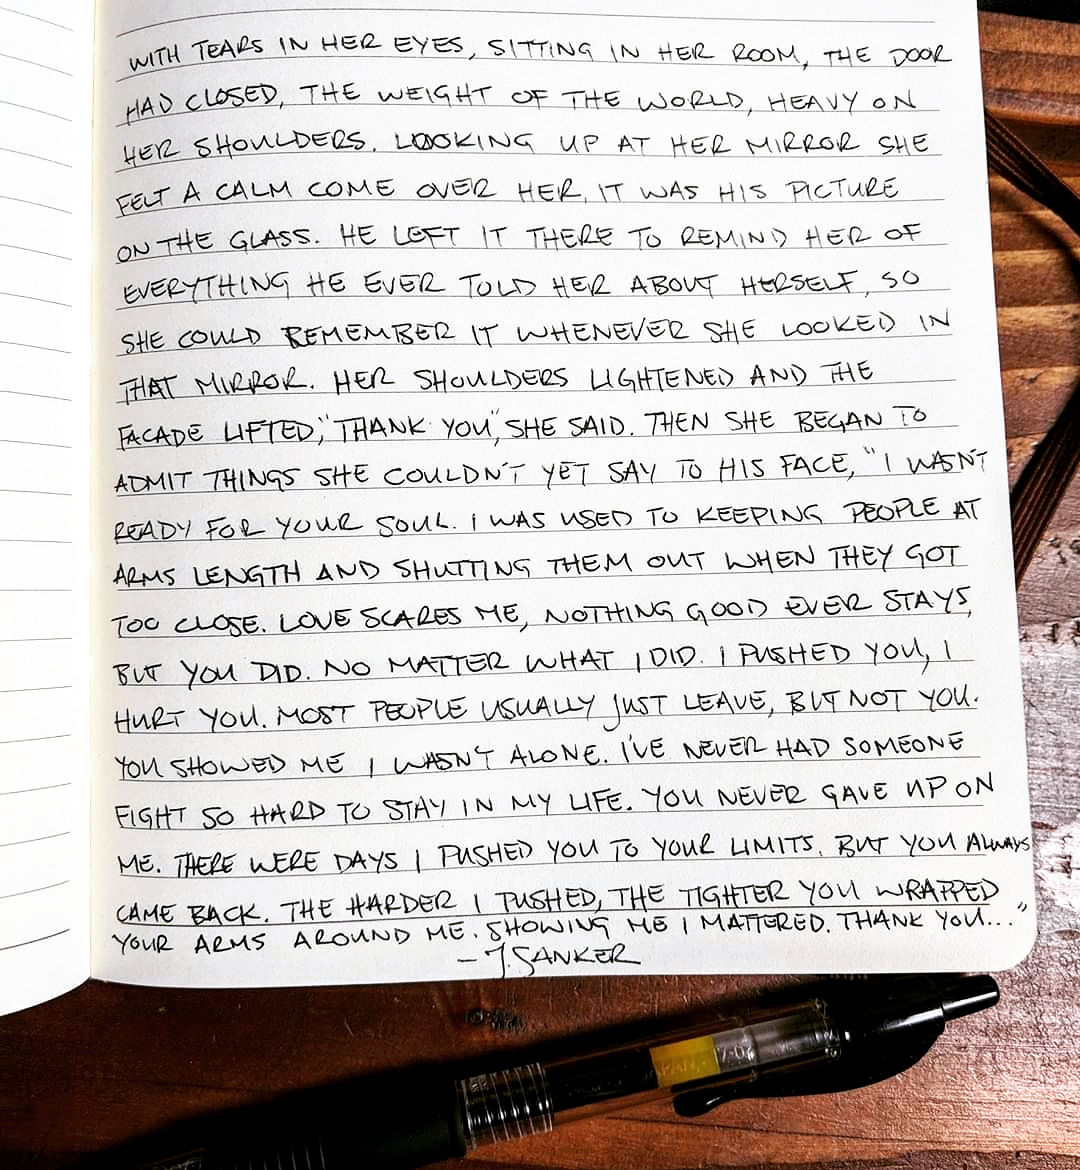 WITH TEARS IN HER EYES, SITTING IN HER ROOM, THE DOOR
HAD CLOSED, THE WEIGHT OF THE WORLD, HEAVY ON
HER SHOULDERS. LOOKING UP AT HER MIRROR SHE
FELT A CALM COME OVER HER, IT WAS HIS PICTURE
ON THE GLASS. HE LEFT IT THERE TO REMIND HER OF
EVERYTHING HE EVER TOLD HER ABOUT HERSELF, SO
SHE COULD REMEMBER IT WHENEVER SHE LOOKED IN
THAT MIRROR. HER SHOULDERS LIGHTENED AND THE
FACADE LIFTED, "THANK YOU", SHE SAID. THEN SHE BEGAN TO
ADMIT THINGS SHE COULDN'T YET SAY TO HIS FACE, "I WASN'T
READY FOR YOUR SOUL. I WAS USED TO KEEPING PEOPLE AT
ARMS LENGTH AND SHUTTING THEM OUT WHEN THEY GOT
TOO CLOSE. LOVE SCARES ME, NOTHING GOOD EVER STAYS,
BUT YOU DID. NO MATTER WHAT I DID. I PUSHED YOU, I
HURT YOU. MOST PEOPLE USUALLY JUST LEAVE, BUT NOT YOU.
YOU SHOWED ME I WASN'T ALONE. I'VE NEVER HAD SOMEONE
FIGHT SO HARD TO STAY IN MY LIFE. YOU NEVER GAVE UP ON
ME. THERE WERE DAYS I PUSHED YOU TO YOUR LIMITS. BUT YOU ALWAYS
CAME BACK. THE HARDER I PUSHED, THE TIGHTER YOU WRAPPED
YOUR ARMS AROUND ME. SHOWING ME I MATTERED. THANK YOU..."
- J. SANKER